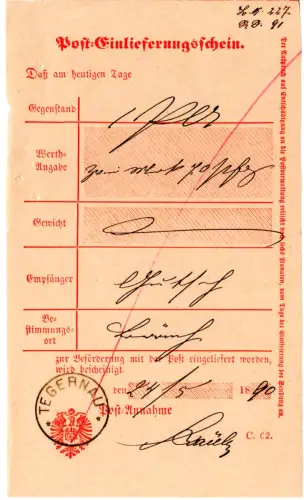 227.
91
Post-Einlieferungsschein.
Daß am heutigen Tage
Gegenstand
1
Werth-
Angabe
zwei Mark 70 Pfg
Gewicht
Empfänger
Gutsch
Be-
stimmungs-
ort
zur Beförderung mit der Post eingeliefert worden,
wird bescheinigt.
TEGERNAU
den 24/5 1890
Post-Annahme
C. 62.
Der Anspruch auf Entschädigung an die Postverwaltung erlischt mit Ablauf von sechs Monaten, vom Tage der Einlieferung der Sendung an.